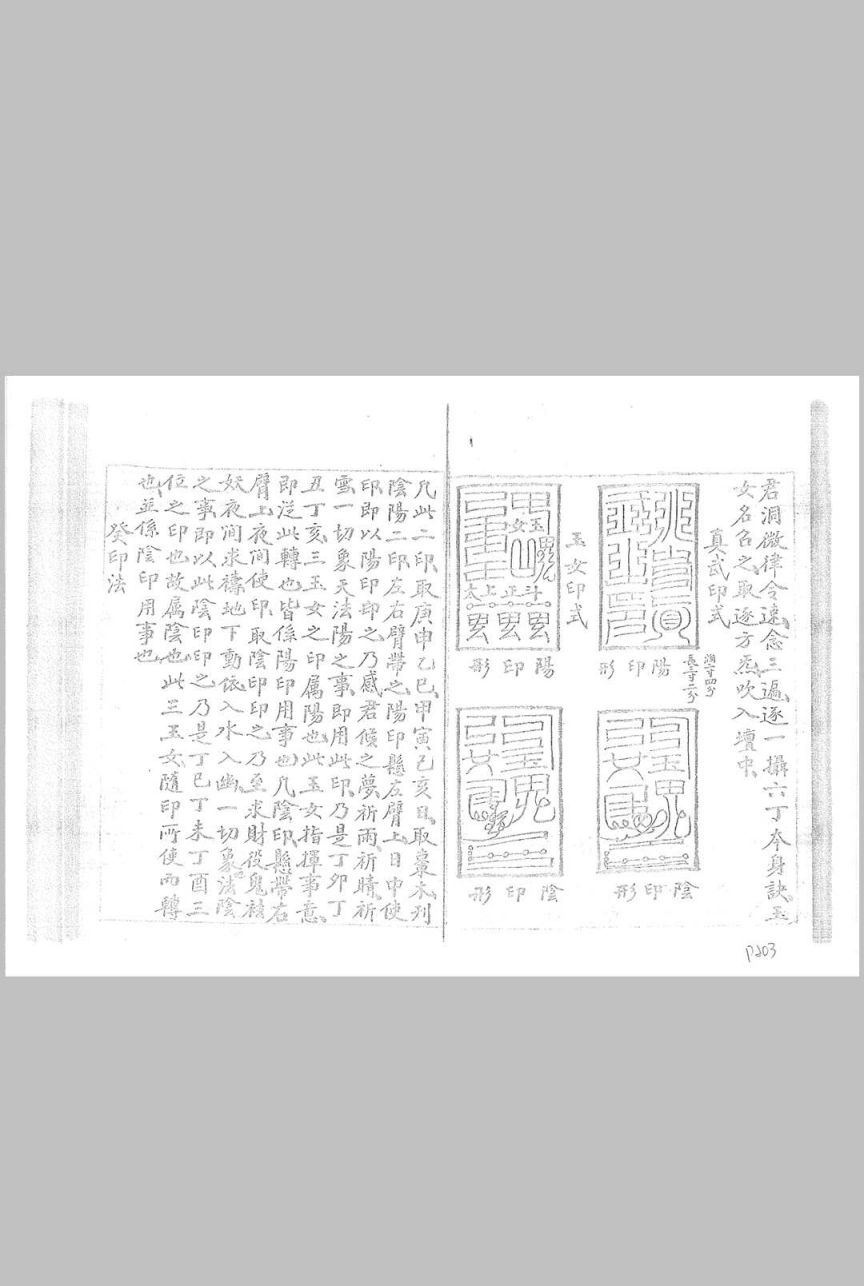 君洞微律令速念三遍逐一攝六丁本身訣玉
女名召之取逐方炁吹入壇中
真武印式
濶一寸四分
長一寸二分
陽印形
陰印形
玉女印式
玉女
太上正斗
陽印形
陰印形
凡此二印取庚申乙巳甲寅己亥日取棗木刋
陰陽二印左右臂帶之陽印懸左臂上日中使
印即以陽印卸之乃感君候之夢祈雨祈晴祈
雪一切象天法陽之事即用此印乃是丁卯丁
丑丁亥三玉女之印属陽也此玉女指揮事意
即從此轉也皆係陽印用事也凡陰印懸帶右
臂上夜間使印取陰印印之乃至求財役鬼祛
妖夜間求禱地下動依入水入幽一切象法陰
之事即以此陰印印之乃是丁巳丁未丁酉三
位之印也故属陰也此三玉女隨印所使而轉
也並係陰印用事也
癸印法
p203